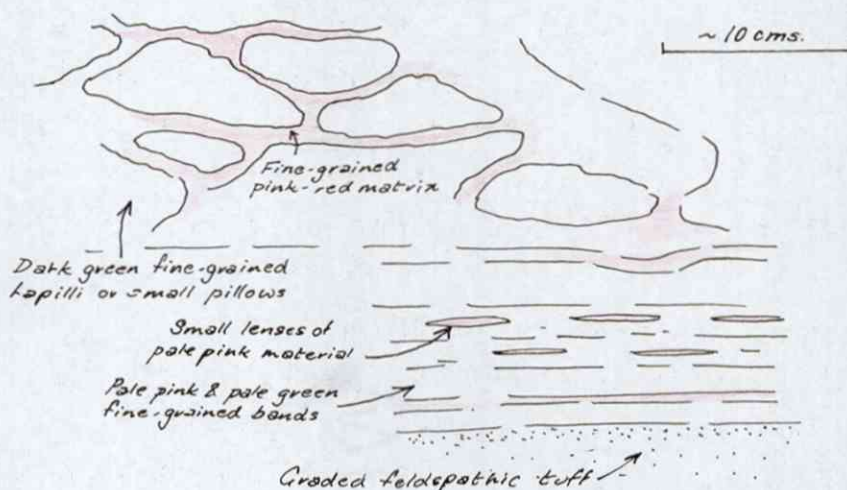 ~ 10 cms.
Fine-grained
pink-red matrix
Dark green fine-grained
Lapilli or small pillows
Small lenses of
pale pink material
Pale pink & pale green
fine-grained bands
Graded feldspathic tuff